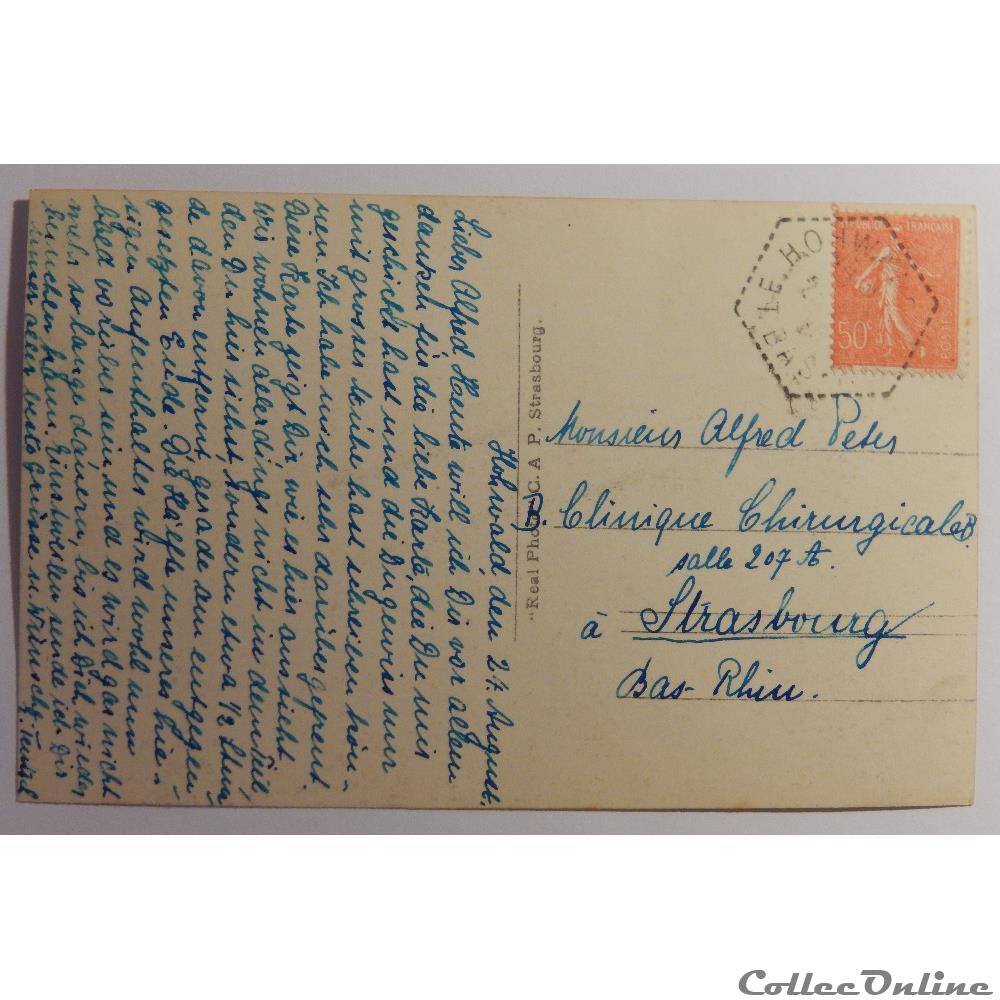 Hohwald, den 27. August.
Lieber Alfred Heute will ich Dir vor allem
danken für die liebe Karte, die Du mir
geschickt hast und die Du gewiss nur
mit grosser Mühe hast schreiben kön-
nen. Ich habe mich sehr darüber gefreut.
Diese Karte zeigt Dir wie es hier aussieht.
Wir wohnen allerdings nicht in dem Teil
den Du hier siehst, sondern etwa 1/2 Stun
de davon entfernt gerade am entgegen
gesetzten Ende. Die Hälfte unseres hie-
sigen Aufenthaltes wird wohl nun
bald vorüber sein und es wird gar nicht
mehr so lange dauern, bis ich Dich wieder
besuchen kann. Einstweilen sende ich Dir
immer aller beste Grüsse u. Wünsche.
"Real Photo" C. A P. Strasbourg.
LE HOHW
BAS-
REPUBLIQUE FRANÇAISE
50c
POSTES
Monsieur Alfred Peter
Clinique Chirurgicale B
salle 207 A.
à Strasbourg
Bas-Rhin.
CollecOnline